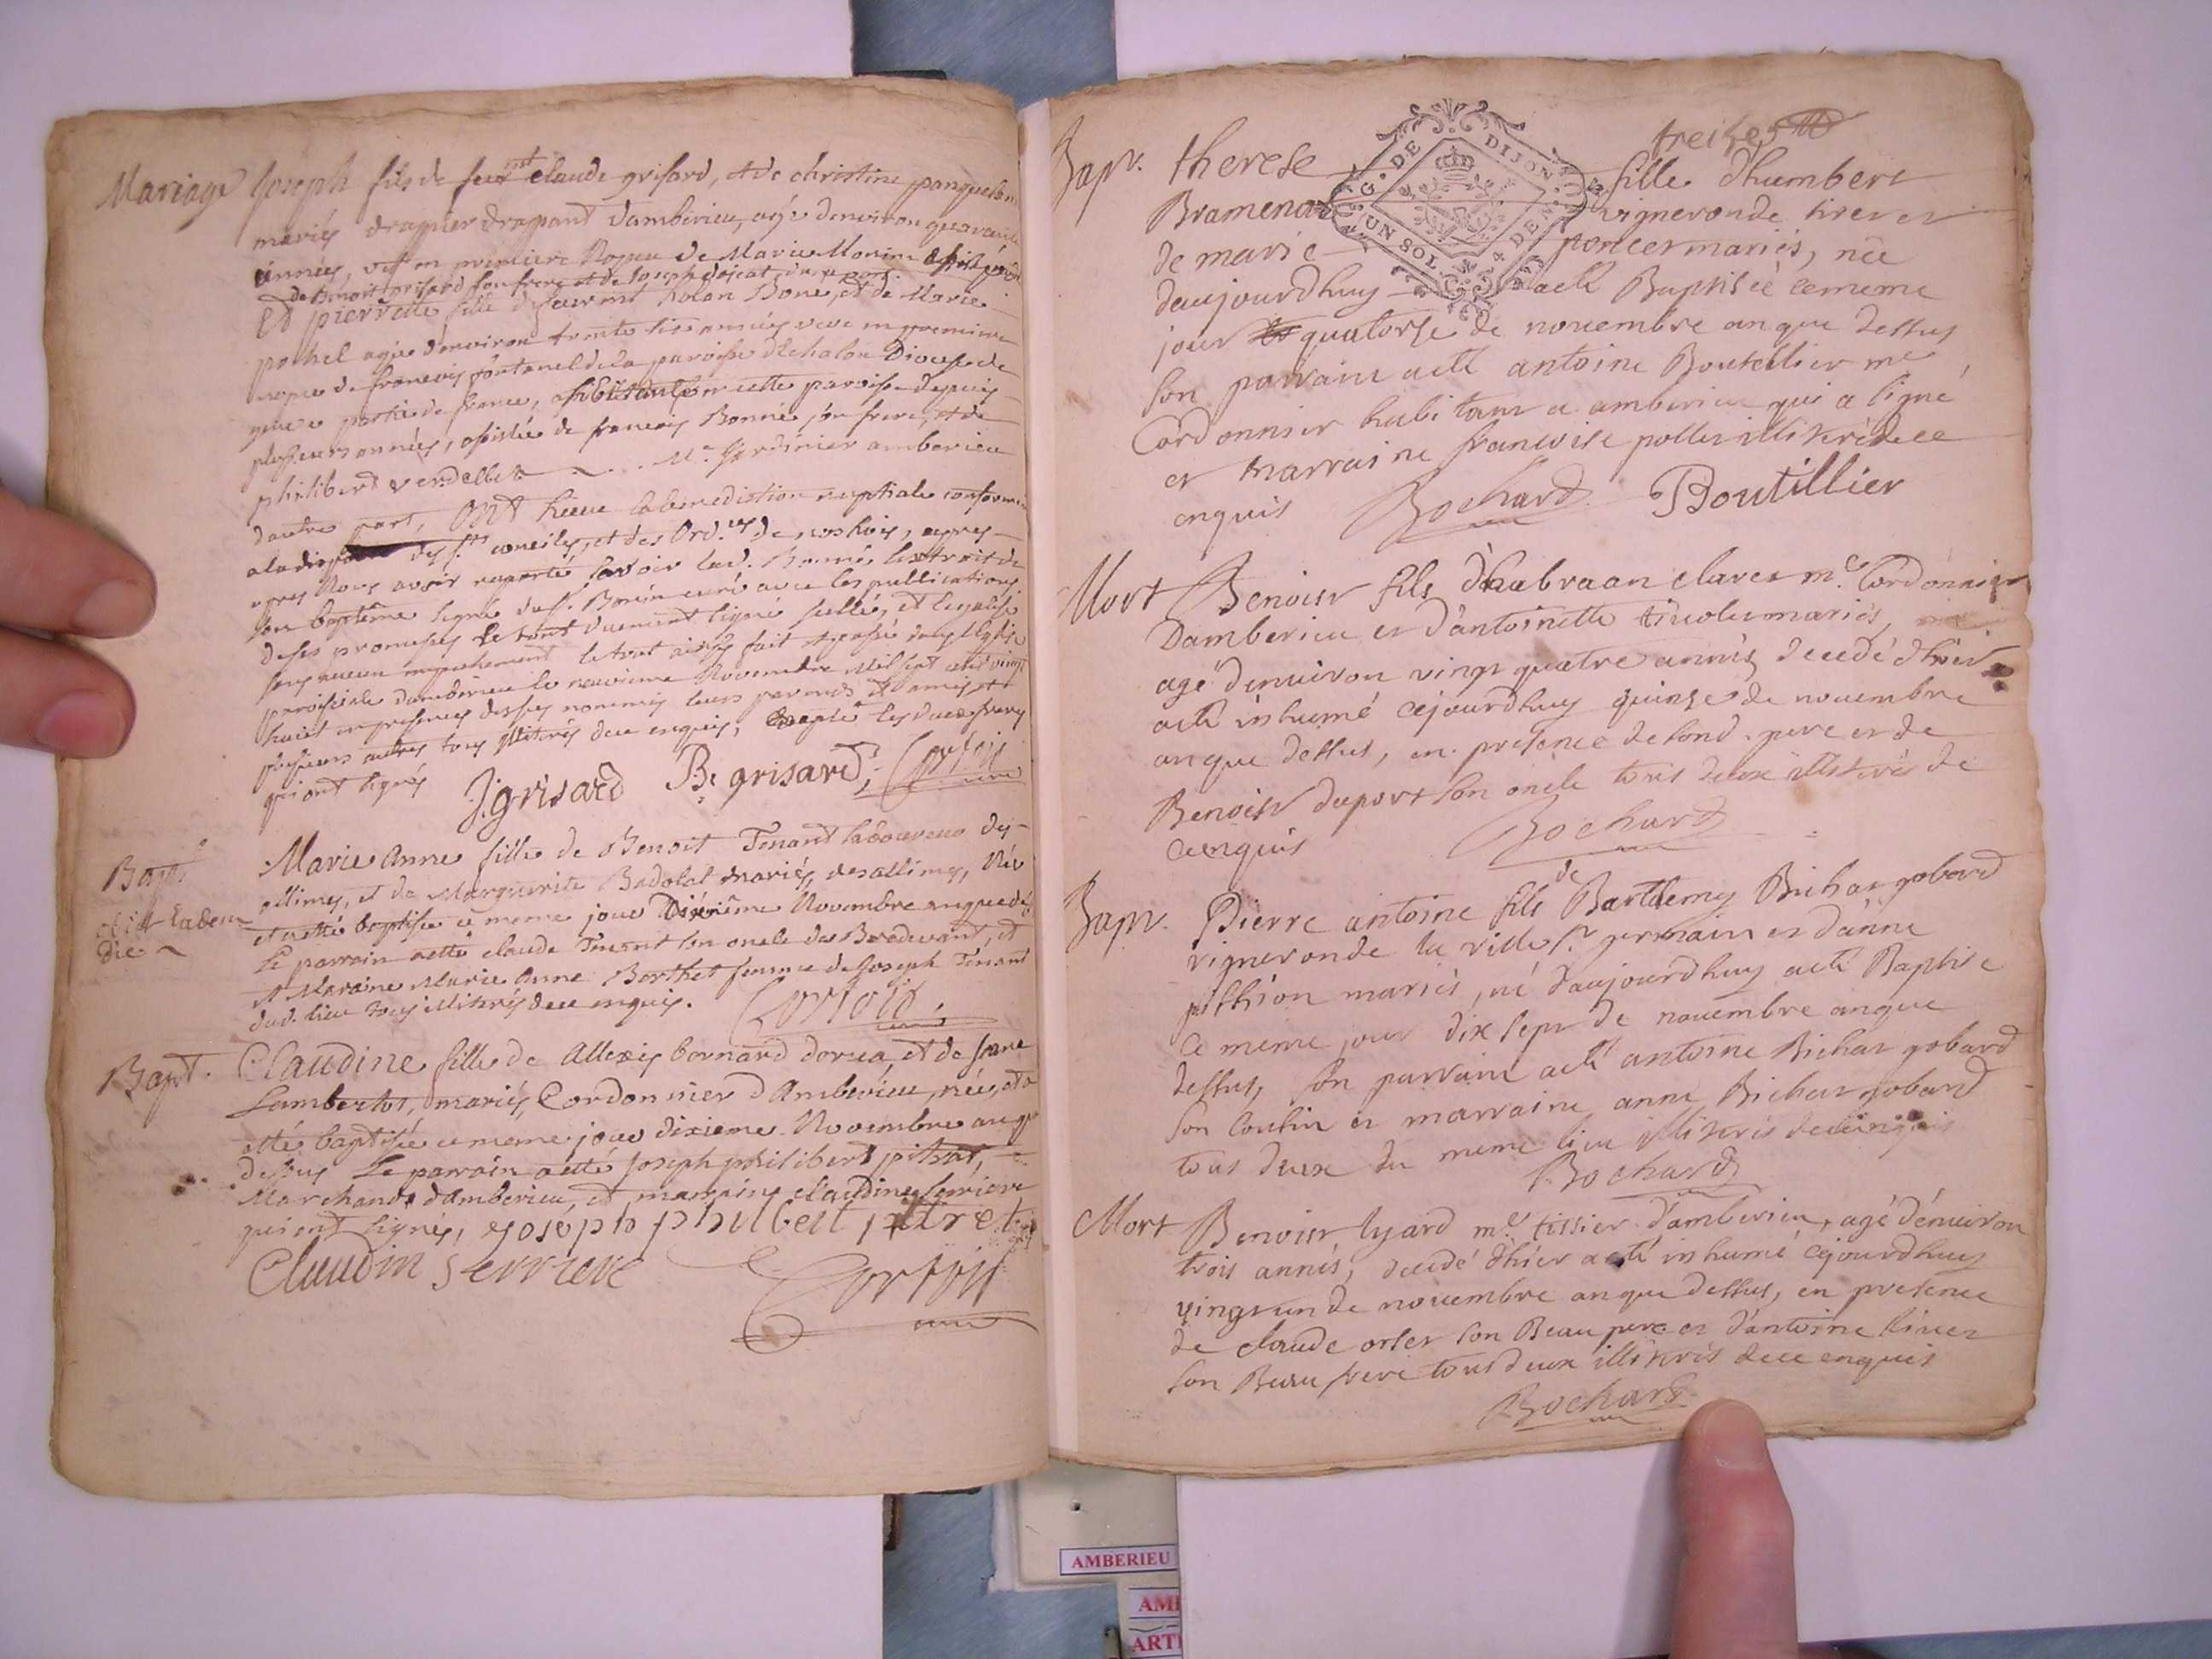 Mariage Joseph fils de feu claude grisard, et de christine
mariés drapier drapant damberieu, agé denviron quarante
années, vef en premiere Nopce de Marie Morin
de Benoit grisard son frere et de Joseph
Et pierrette fille de Bone, et de Marie
pochel agée denviron trente six années veve en premiere
nopce de francois fontanel de la paroisse dEchalon Diocese de
partie de france, habitante en cette paroisse depuis
plusieurs années, assistée de francois Bonne son frere, et de
philibert verdellet Me Jardinier amberieu
dautre part, Ont heue la benediction nuptiale
des sts conciles, et des Ordces de nos Rois, apres
apres Nous avoir raporté savoir lad. Bonne lextrait de
son baptême signé du sr. curé avec les publications
de ses promesses le tout duement signé scellé, et legalisé
sans aucun empechement le tout ainsy fait et passé dans leglise
paroissiale damberieu le neuvieme Novembre mil sept cent vingt
huict en presences desses nommés leurs parents et amis et
plusieurs autres tous illiterés de ce enquis, excepté les deux freres
qui ont signés
J. grisard B. grisard, Cortois
Bapt.
Marie Anne fille de Benoit Tenant laboureur des
allimes, et de Marguerite Badolat mariés, des allimes, Née
et a etté baptisée ce meme jour Dixième Novembre an que de
Le parrain a etté claude Tenant son oncle de Bredevent, et
et Maraine Marie Anne Berthet femme de Joseph Tenant
dud. lieu tous illiterés de ce enquis. Cortois
Bapt. Claudine fille de Allexis bornard dorea, et de
Lambertos, mariés, Cordonnier d Amberieu, née, et a
etté baptisée ce meme jour dixieme Novembre an que
dessus Le parrain a etté Joseph philibert pitrat,
Marchand d'Amberieu, et marraine claudine serriere
qui ont signés, Joseph philbert pitret
Claudin serriere
Cortois
treize
Bapt. therese fille d'humbert
Bramena vigneron de tiret et
de marie poncet mariés, née
daujourdhuy a eté Baptisée ce meme
jour quatorse de novembre an que dessus
son parrain a eté antoine Boutellier me
Cordonnier habitant a amberieu qui a signé
et marraine francoise pollet illiterée de ce
enquis Bochard Boutillier
G. DE DIJON
UN SOL 4 DEN.
Mort Benoist fils d'habraan claret me Cordonnier
Damberieu et d'antoinette tivolet mariés,
agé denuiron vingt quatre annés decedé d'hier
a eté inhumé cejourdhuy quinze de nouembre
an que dessus, en presence de sond. pere et de
Benoist duport son oncle tous deux illiterés de
ce enquis Bochard
Bapt. Pierre antoine fils de Barthlemy Bichat gobard
vigneron de la ville st germain et d'anne
pithion mariés, né d'aujourdhuy a eté Baptisé
ce meme jour dix sept de nouembre an que
dessus, son parrain a eté antoine Bichat gobard
son Cousin et marraine anne Bichat gobard
tous deux du meme lieu illiterés de ce enquis
Bochard
Mort Benoist lyard me tissier d'amberieu, agé d'enuiron
trois annés, decedé d'hier a eté inhumé cejourdhuy
vingt un de nouembre an que dessus, en presence
de claude orset son Beau pere et d'antoine liuet
son Beau frere tous deux illiterés de ce enquis
Bochard
AMBERIEU
AM
ARTI